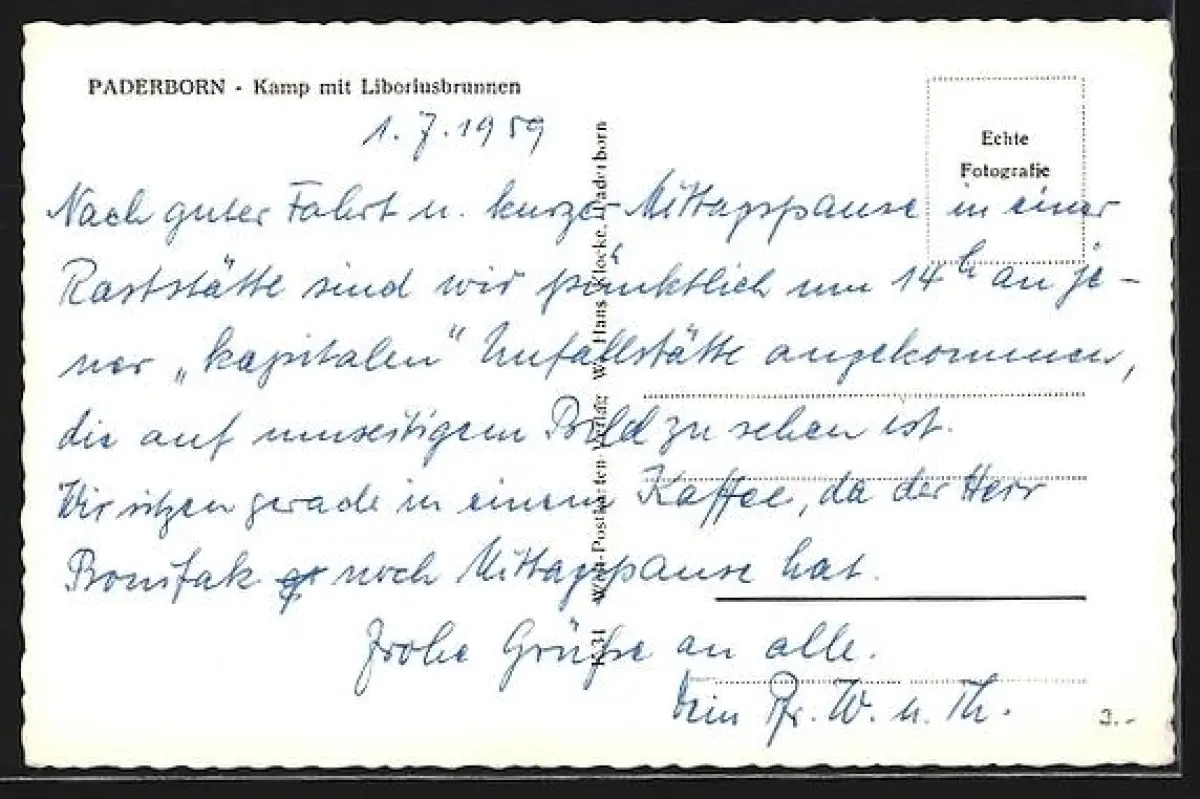 PADERBORN - Kamp mit Liboriusbrunnen
Echte
Fotografie
1.7.1959
Nach guter Fahrt u. kurzer Mittagspause in einer
Raststätte sind wir pünktlich um 14h an je-
ner „kapitalen" Unfallstätte angekommen,
die auf umseitigem Bild zu sehen ist.
Wir sitzen gerade in einem Kaffee, da der Herr
noch Mittagspause hat.
Frohe Grüße an alle.
Dein Pr. W. u. Th.
3.-
Postkarten-Verlag Hans Klocke, Paderborn